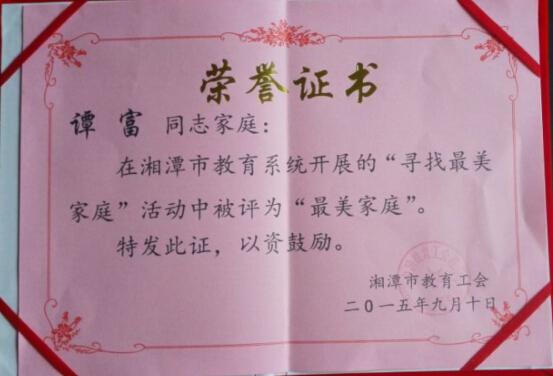 荣誉证书
谭富 同志家庭：
在湘潭市教育系统开展的“寻找最美
家庭”活动中被评为“最美家庭”。
特发此证，以资鼓励。
湘潭市教育工会
二0一五年九月十日